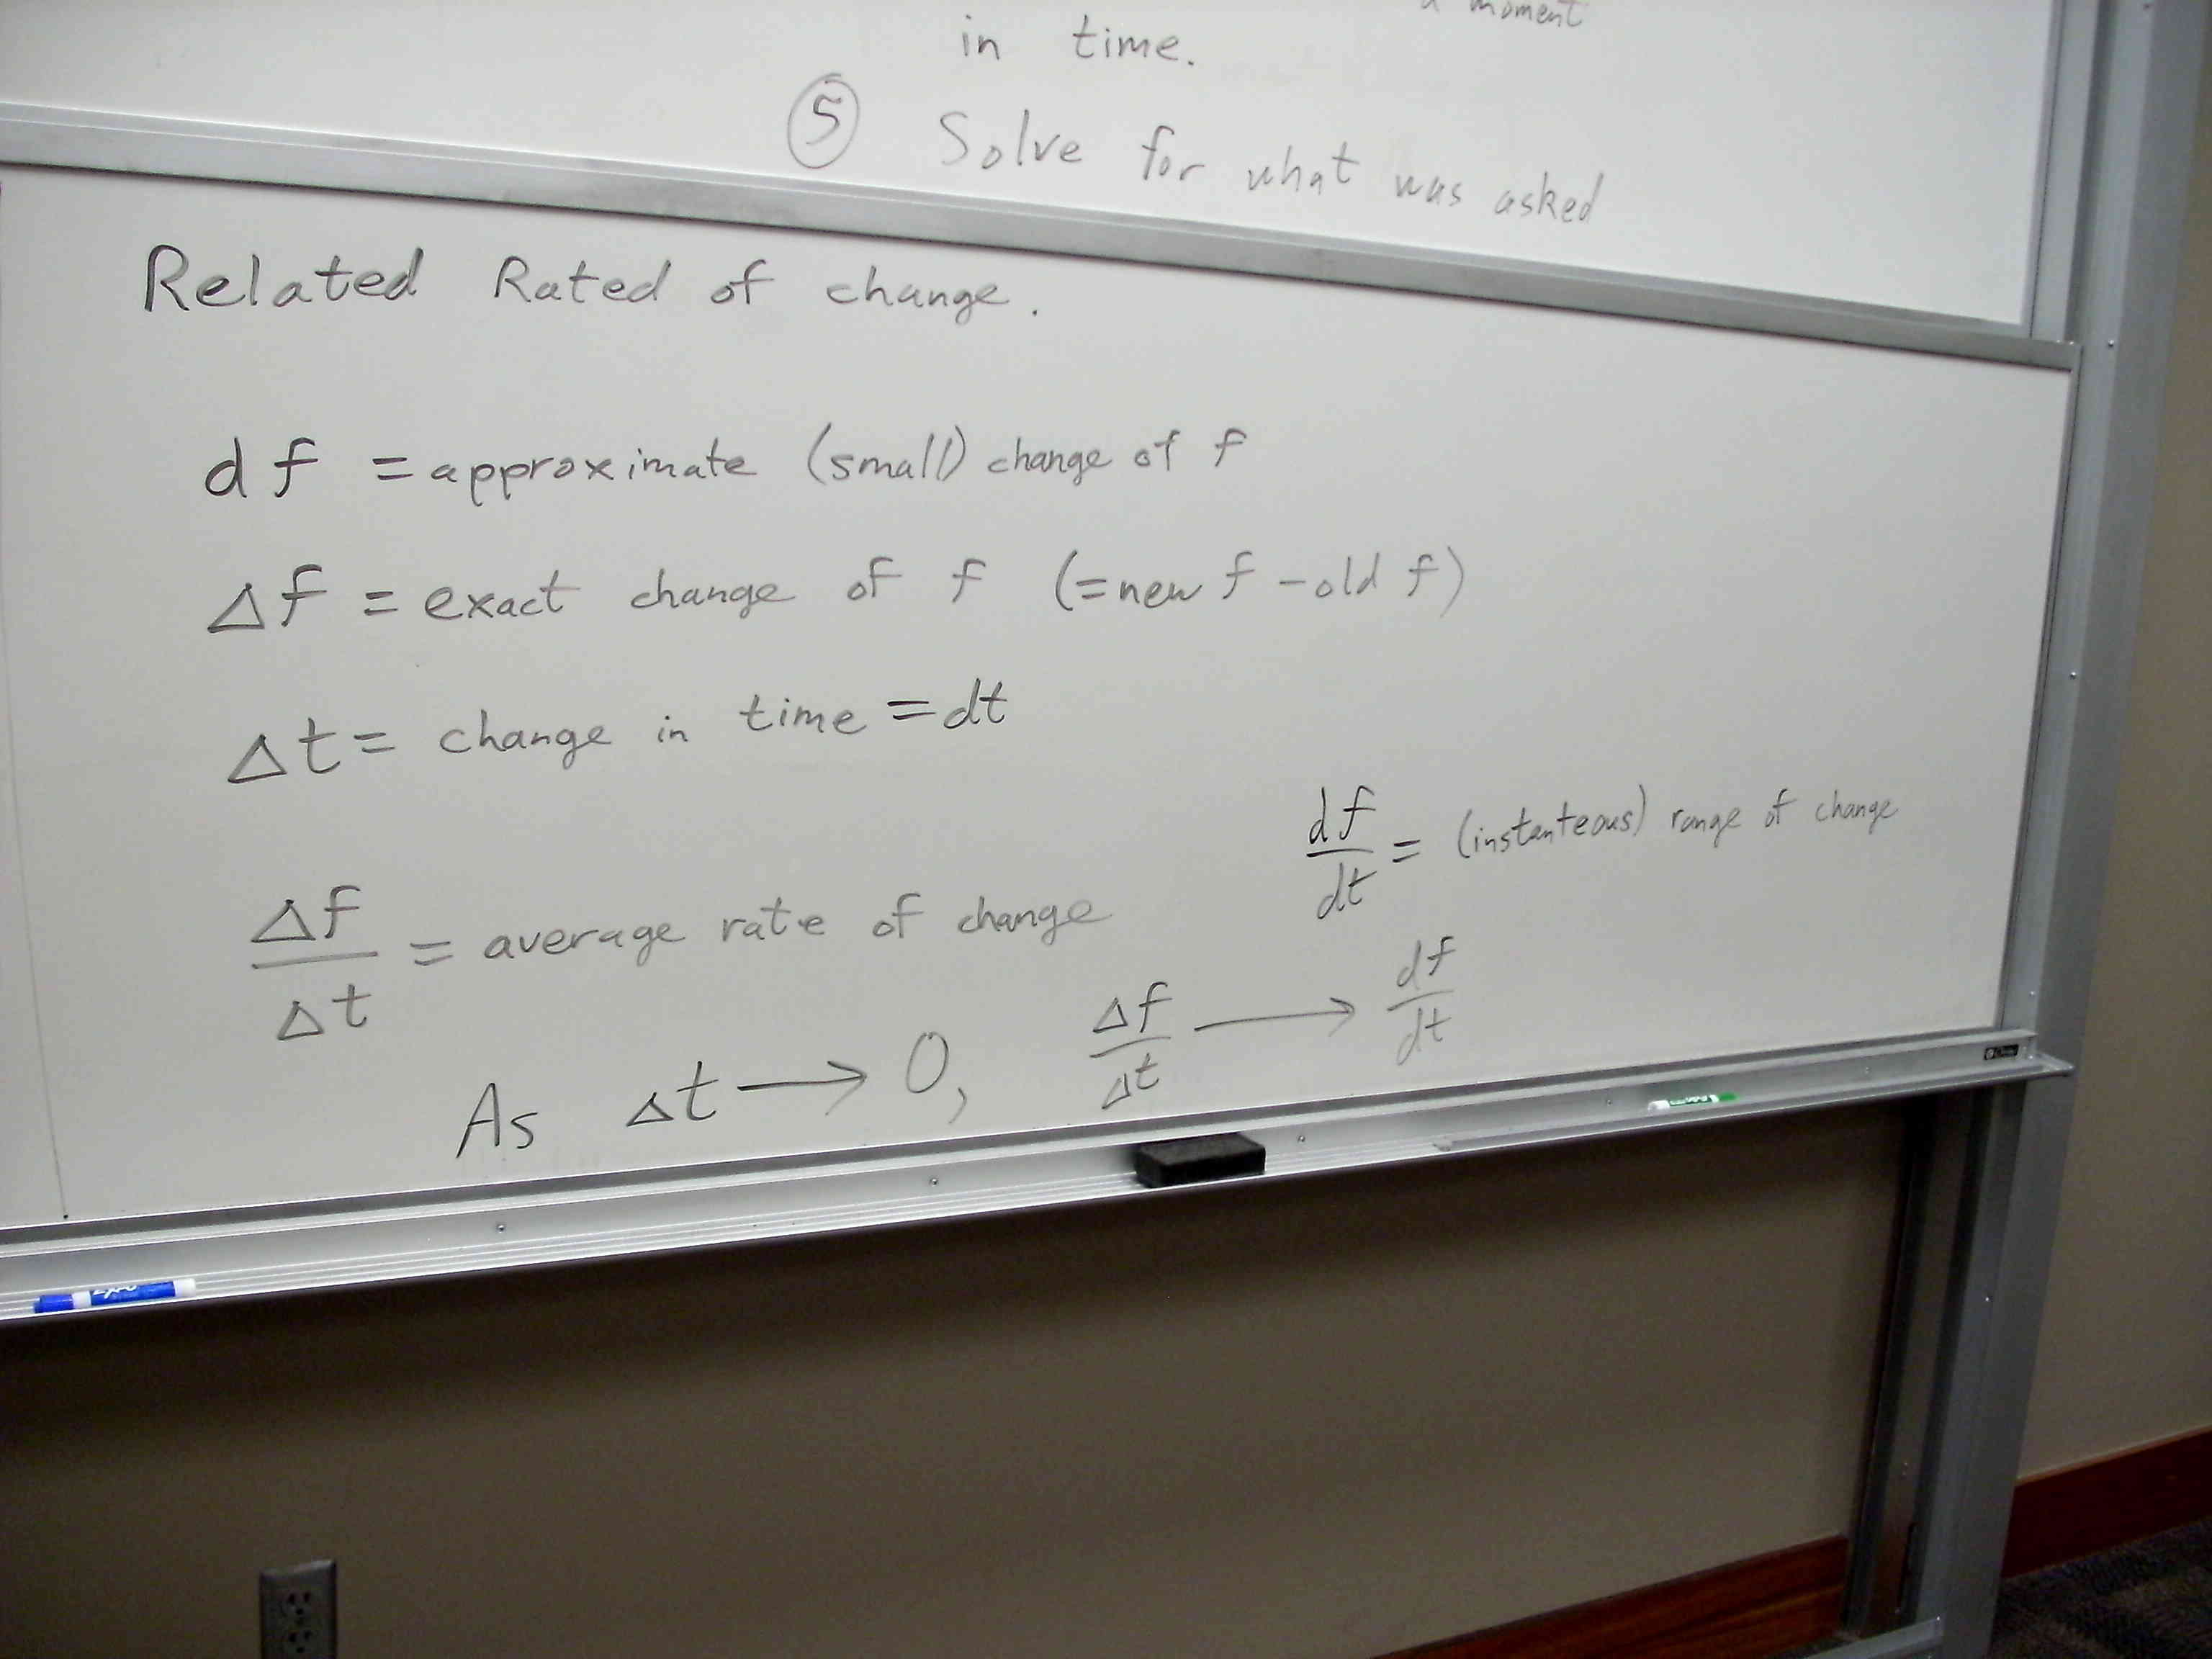 a moment
in time.
⑤ Solve for what was asked
Related Rated of change.
df = approximate (small) change of f
Δf = exact change of f (= new f - old f)
Δt = change in time = dt
df/dt = (instanteous) range of change
Δf/Δt = average rate of change
As Δt → 0, Δf/Δt → df/dt
EXPO